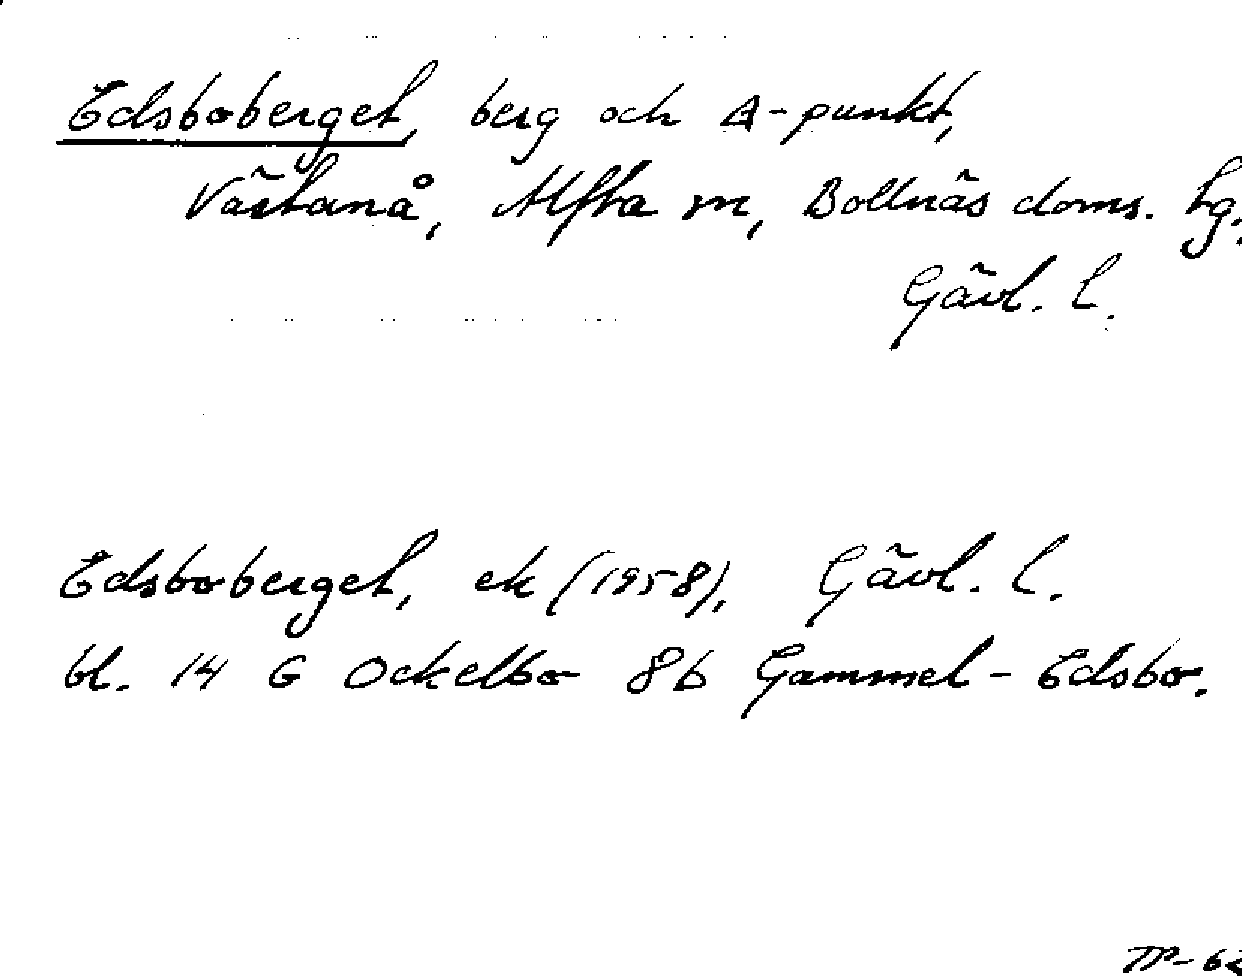 Edsboberget, berg och Δ-punkt,
Västanå, Alfta sn, Bollnäs doms. hg.
Gävl. l.
Edsboberget, ek (1958), Gävl. l.
bl. 14 G Ockelbo 8b Gammel-Edsbo.